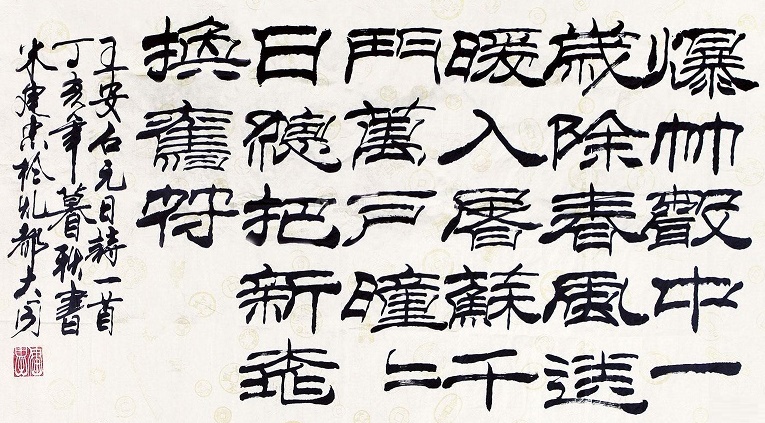 爆竹聲中一
歲除春風送
暖入屠蘇千
門萬戶曈々
日總把新桃
換舊符
王安石元日詩一首
丁亥年暮秋書
米建於北都大同